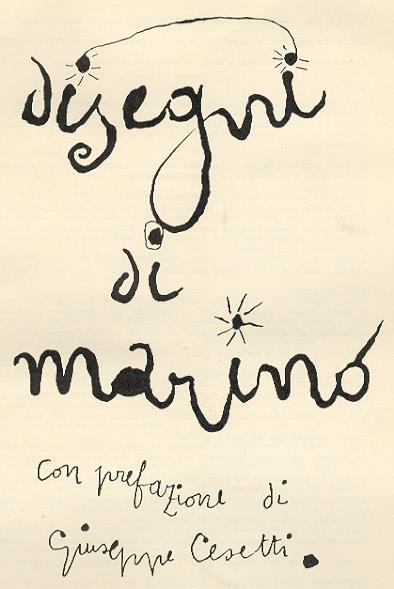 disegni
di
marino
con prefazione di
Giuseppe Cesetti.